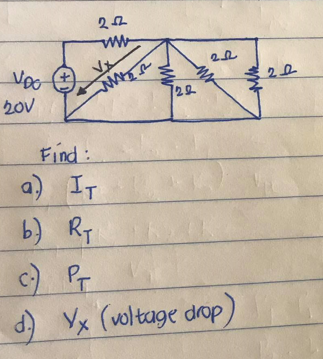 2 Ω
Vx
2 Ω
2 Ω
2 Ω
2 Ω
VDC
20V
Find :
a.) IT
b.) RT
c.) PT
d.) Vx (voltage drop)